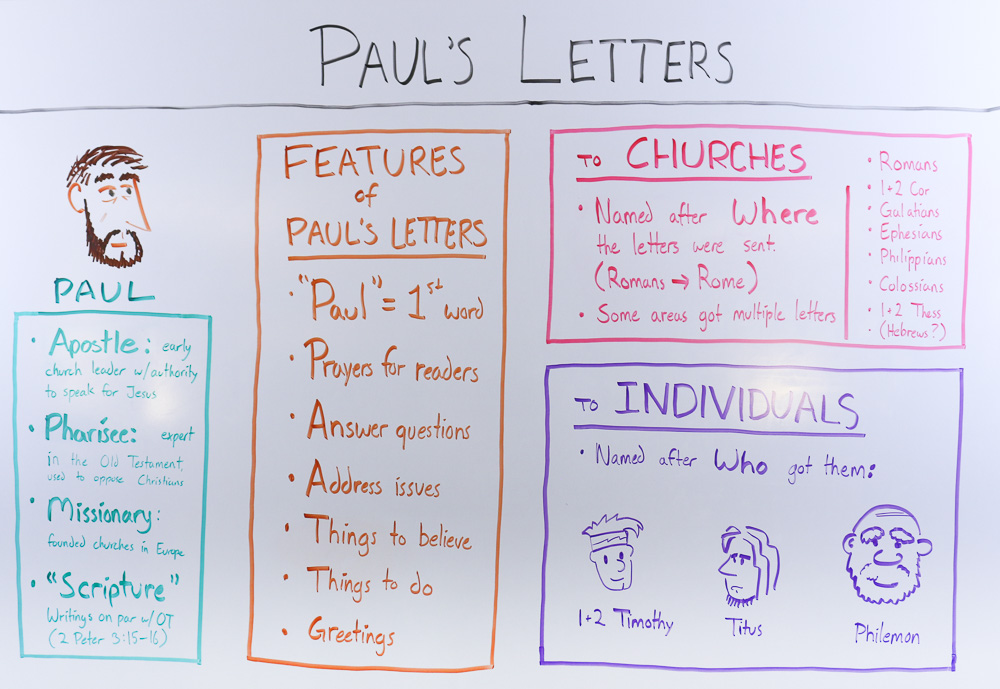 PAUL'S LETTERS
PAUL
• Apostle: early
church leader w/authority
to speak for Jesus
• Pharisee: expert
in the Old Testament,
used to oppose Christians
• Missionary:
founded churches in Europe
• "Scripture"
Writings on par w/OT
(2 Peter 3:15-16)
FEATURES
of
PAUL'S LETTERS
• "Paul" = 1st word
• Prayers for readers
• Answer questions
• Address issues
• Things to believe
• Things to do
• Greetings
TO CHURCHES
• Named after Where
the letters were sent.
(Romans → Rome)
• Some areas got multiple letters
• Romans
• 1+2 Cor
• Galatians
• Ephesians
• Philippians
• Colossians
• 1+2 Thess
• (Hebrews?)
TO INDIVIDUALS
• Named after Who got them:
1+2 Timothy
Titus
Philemon